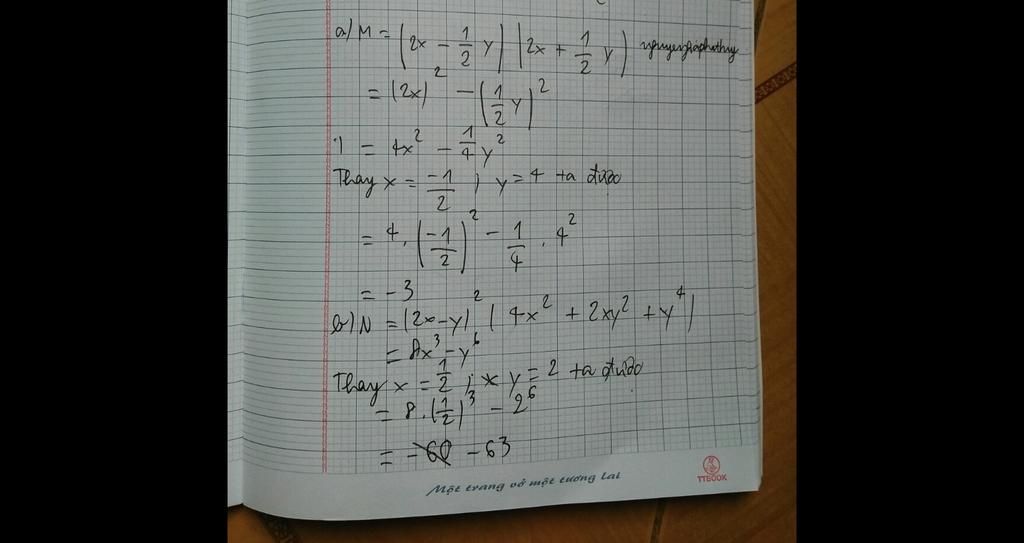 a) M = (2x - 1/2 y) (2x + 1/2 y)
= (2x)² - (1/2 y)²
= 4x² - 1/4 y²
Thay x = -1/2 ; y = 4 ta được
= 4 . (-1/2)² - 1/4 . 4²
= -3
b) N = (2x-y)² (4x² + 2xy² + y⁴)
= 8x³ - y⁶
Thay x = 1/2 ; y = 2 ta được
= 8 . (1/2)³ - 2⁶
= -63
Một trang vở một tương lai
TTBOOK